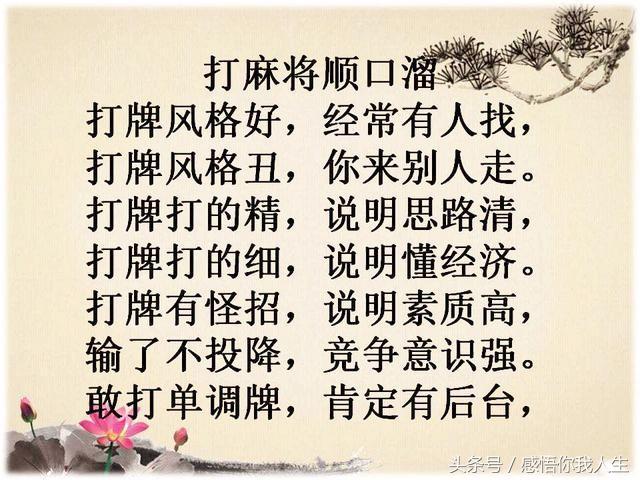 打麻将顺口溜
打牌风格好，经常有人找，
打牌风格丑，你来别人走。
打牌打的精，说明思路清，
打牌打的细，说明懂经济。
打牌有怪招，说明素质高，
输了不投降，竞争意识强。
敢打单调牌，肯定有后台，
头条号 / 感悟你我人生